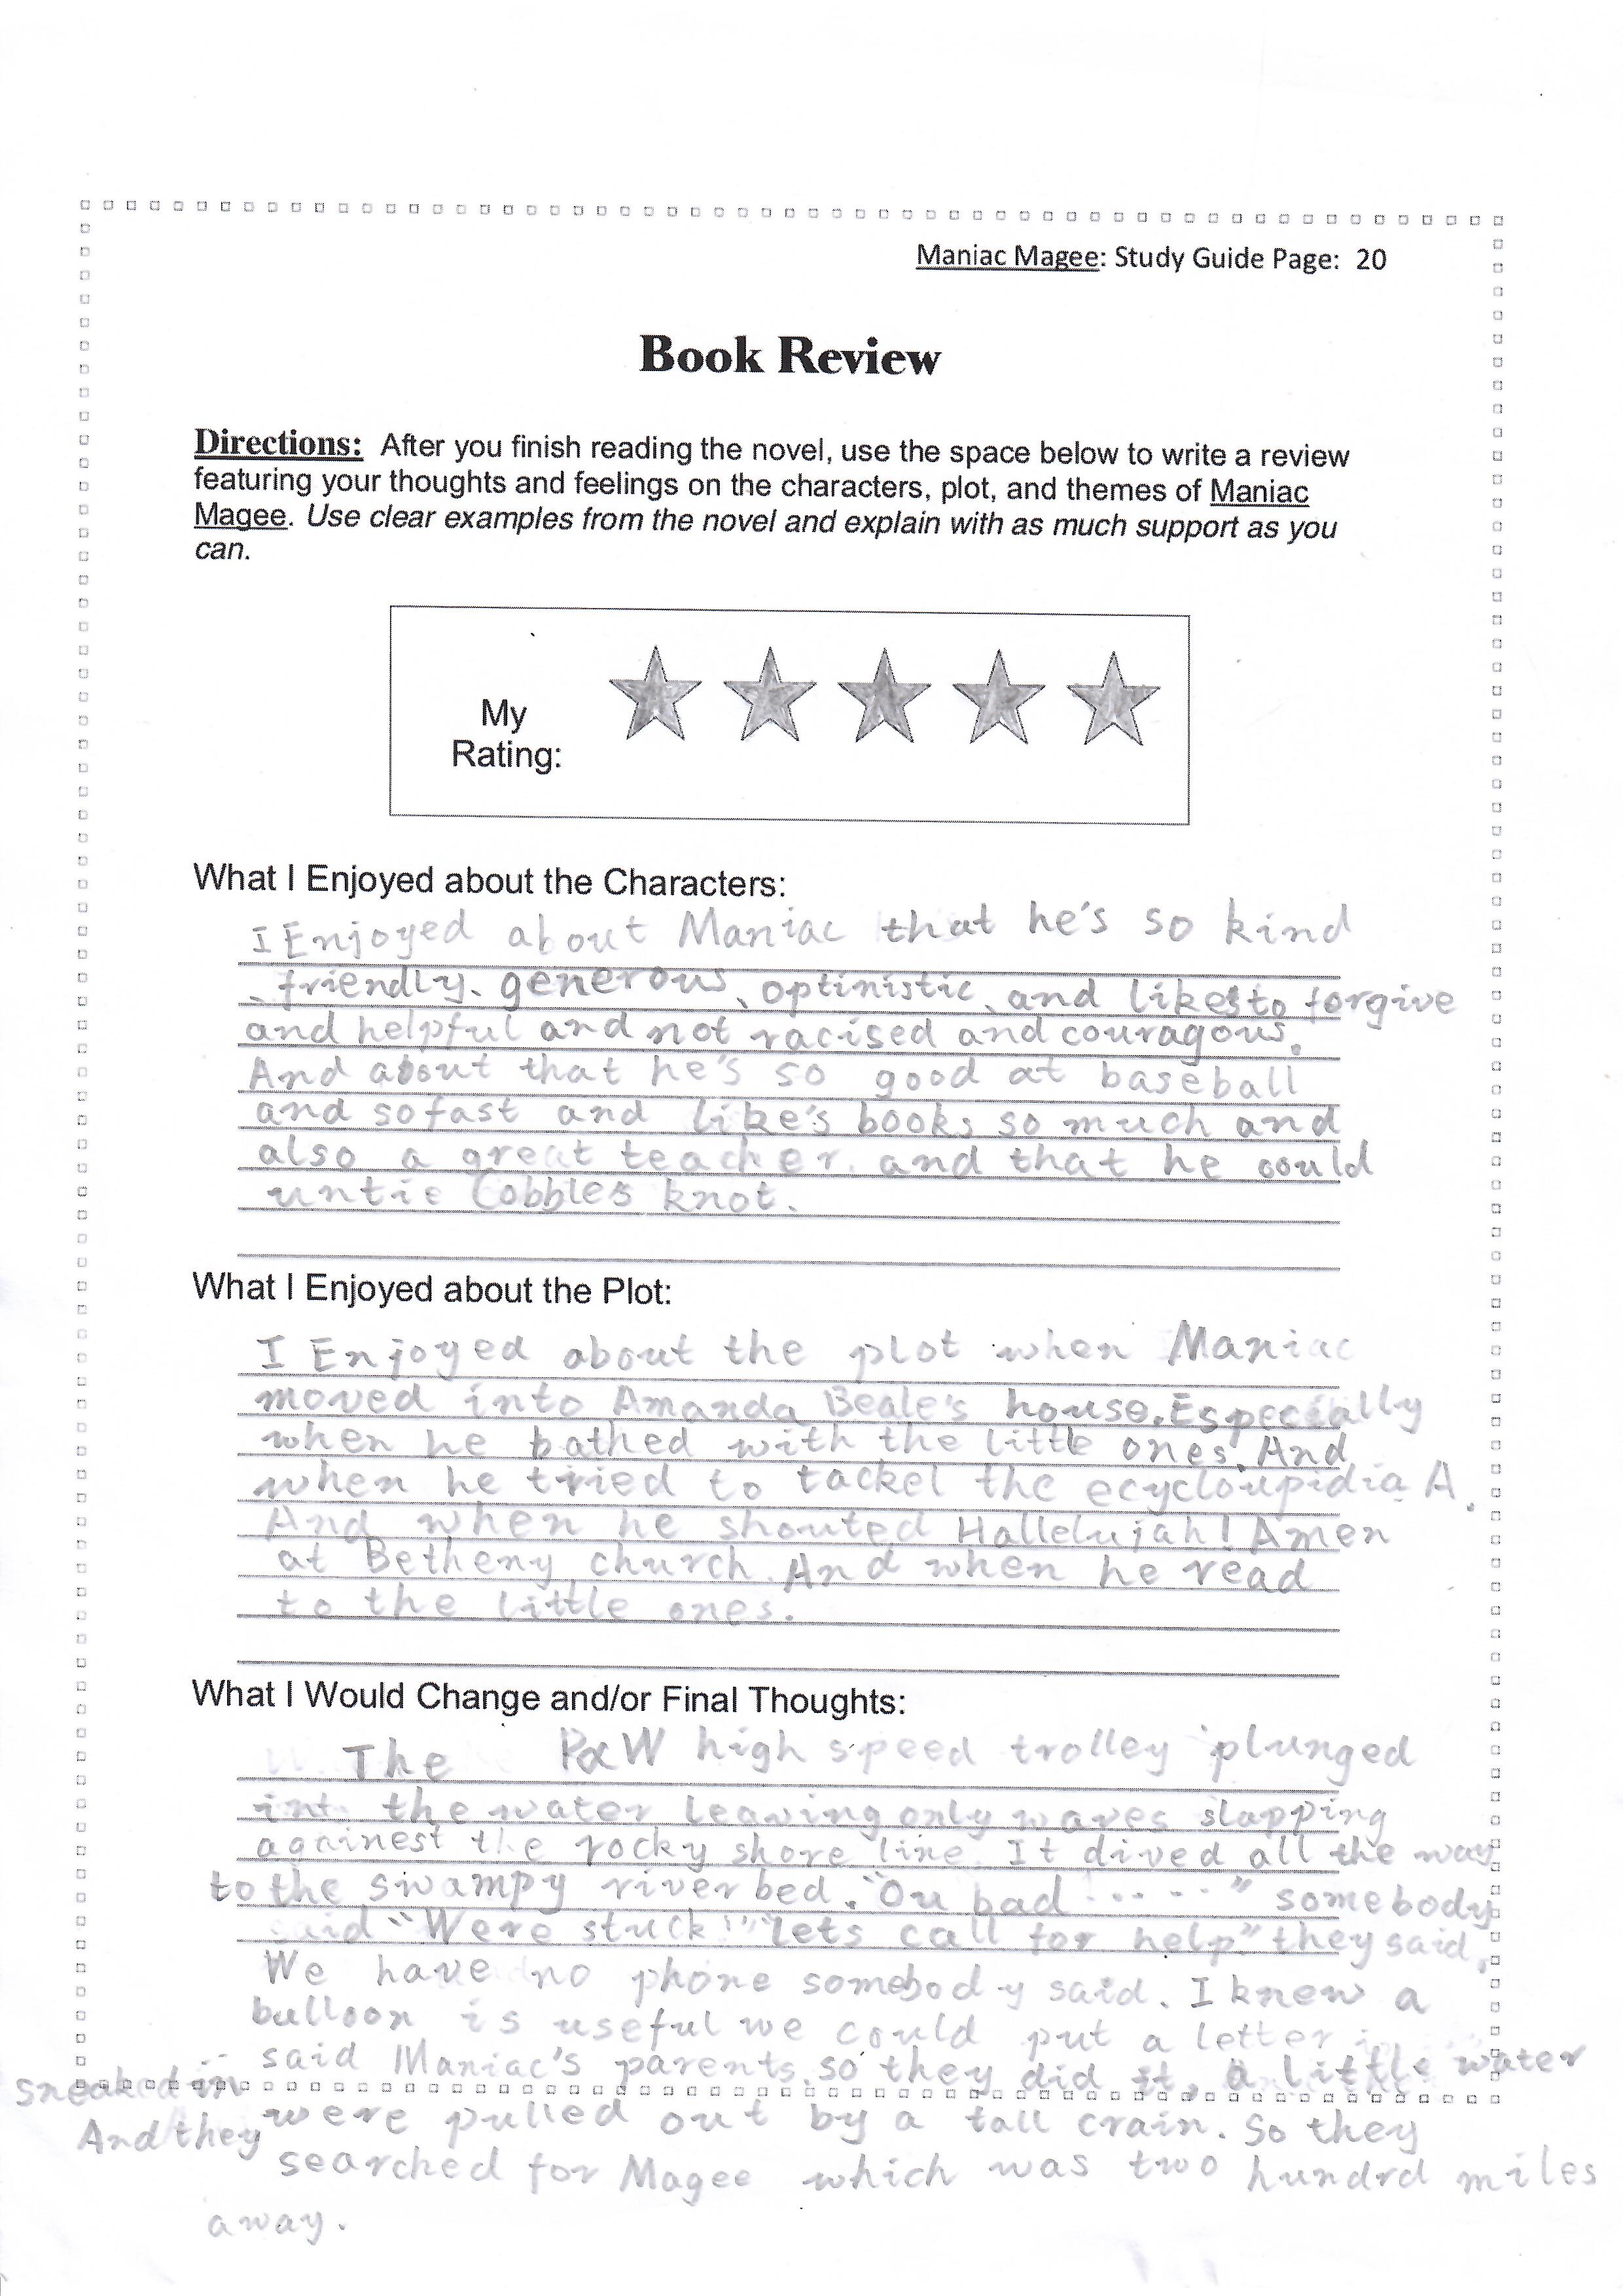 Maniac Magee: Study Guide Page: 20
Book Review
Directions: After you finish reading the novel, use the space below to write a review
featuring your thoughts and feelings on the characters, plot, and themes of Maniac
Magee. Use clear examples from the novel and explain with as much support as you
can.
My
Rating:
What I Enjoyed about the Characters:
I Enjoyed about Maniac that he's so kind
, friendly, generous, optinistic, and likes to forgive
and helpful and not racised and couragous.
And about that he's so good at baseball
and so fast and like's books so much and
also a great teacher and that he could
untie Cobbles knot.
What I Enjoyed about the Plot:
I Enjoyed about the plot when Maniac
moved into Amanda Beale's house. Especially
when he bathed with the little ones. And
when he tried to tackel the ecycloupidia A.
And when he shouted Hallelujah! Amen
at Betheny church. And when he read
to the little ones.
What I Would Change and/or Final Thoughts:
The P&W high speed trolley plunged
int the water leaving only waves slapping
againest the rocky shore line. It dived all the way
to the swampy river bed. "Ou bad ......" somebody
said "Were stuck" "lets call for help" they said.
We have no phone somebody said. I knew a
balloon is useful we could put a letter
said Maniac's parents. so they did it, a little water
sneaked in
And they were pulled out by a tall crain. So they
searched for Magee which was two hundrd miles
away.